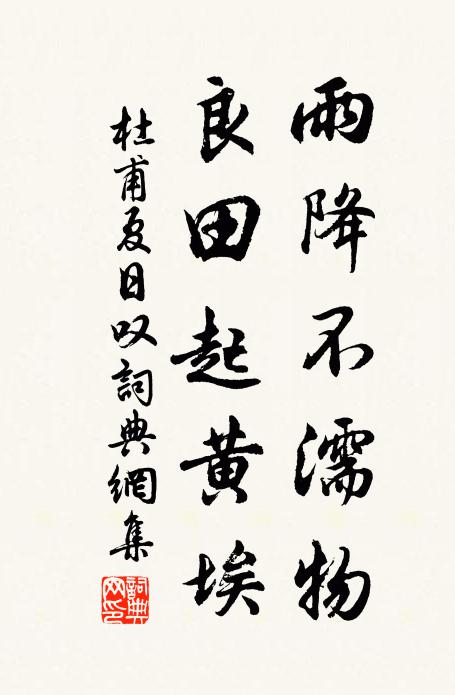 雨降不濡物
良田起黄埃
杜甫夏日叹詞典網集
詞典网印